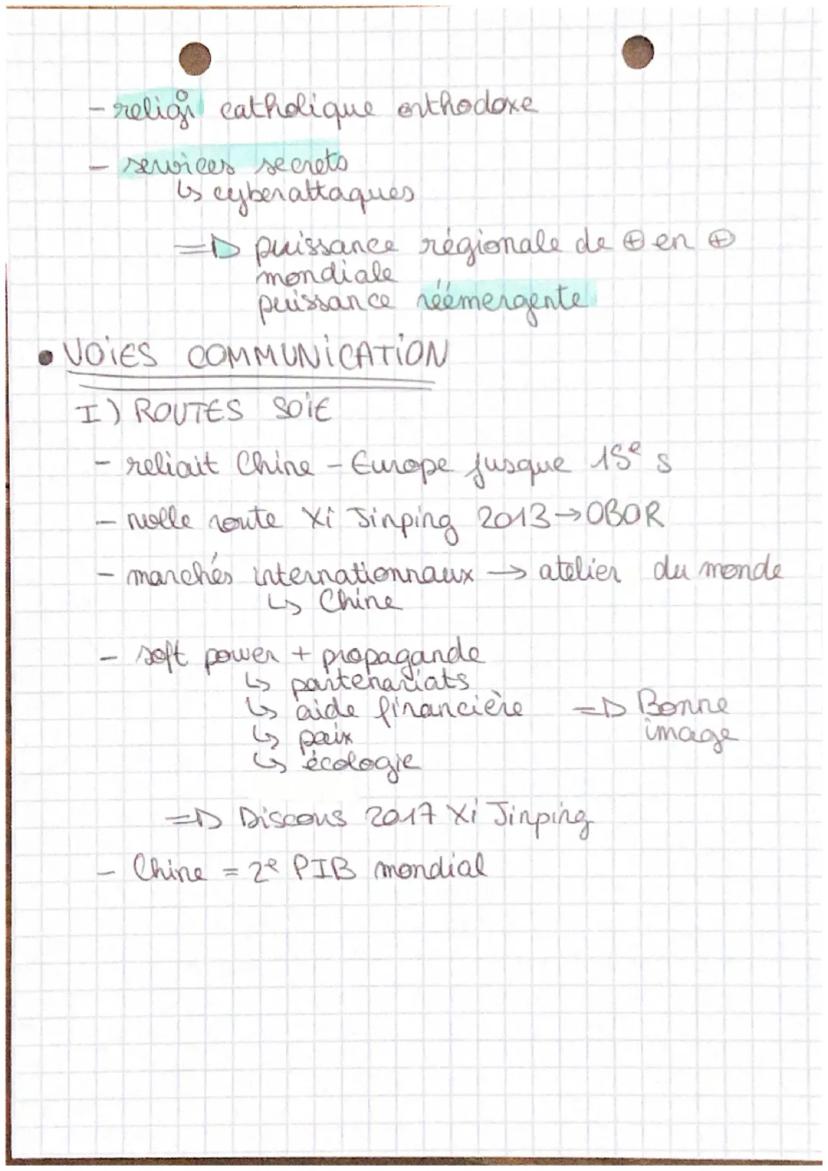 - religi° catholique orthodoxe
- services secrets
↳ cyberattaques
=> puissance régionale de ⊕ en ⊕
mondiale
puissance réémergente
• VOIES COMMUNICATION
I) ROUTES SOIE
- reliait Chine - Europe jusque 15e s
- nvolle route Xi Jinping 2013 → OBOR
- marchés internationnaux → atelier du monde
↳ Chine
- soft power + propagande
↳ partenariats
↳ aide financière => Bonne
↳ paix image
↳ écologie
=> Discous 2017 Xi Jinping
- Chine = 2e PIB mondial